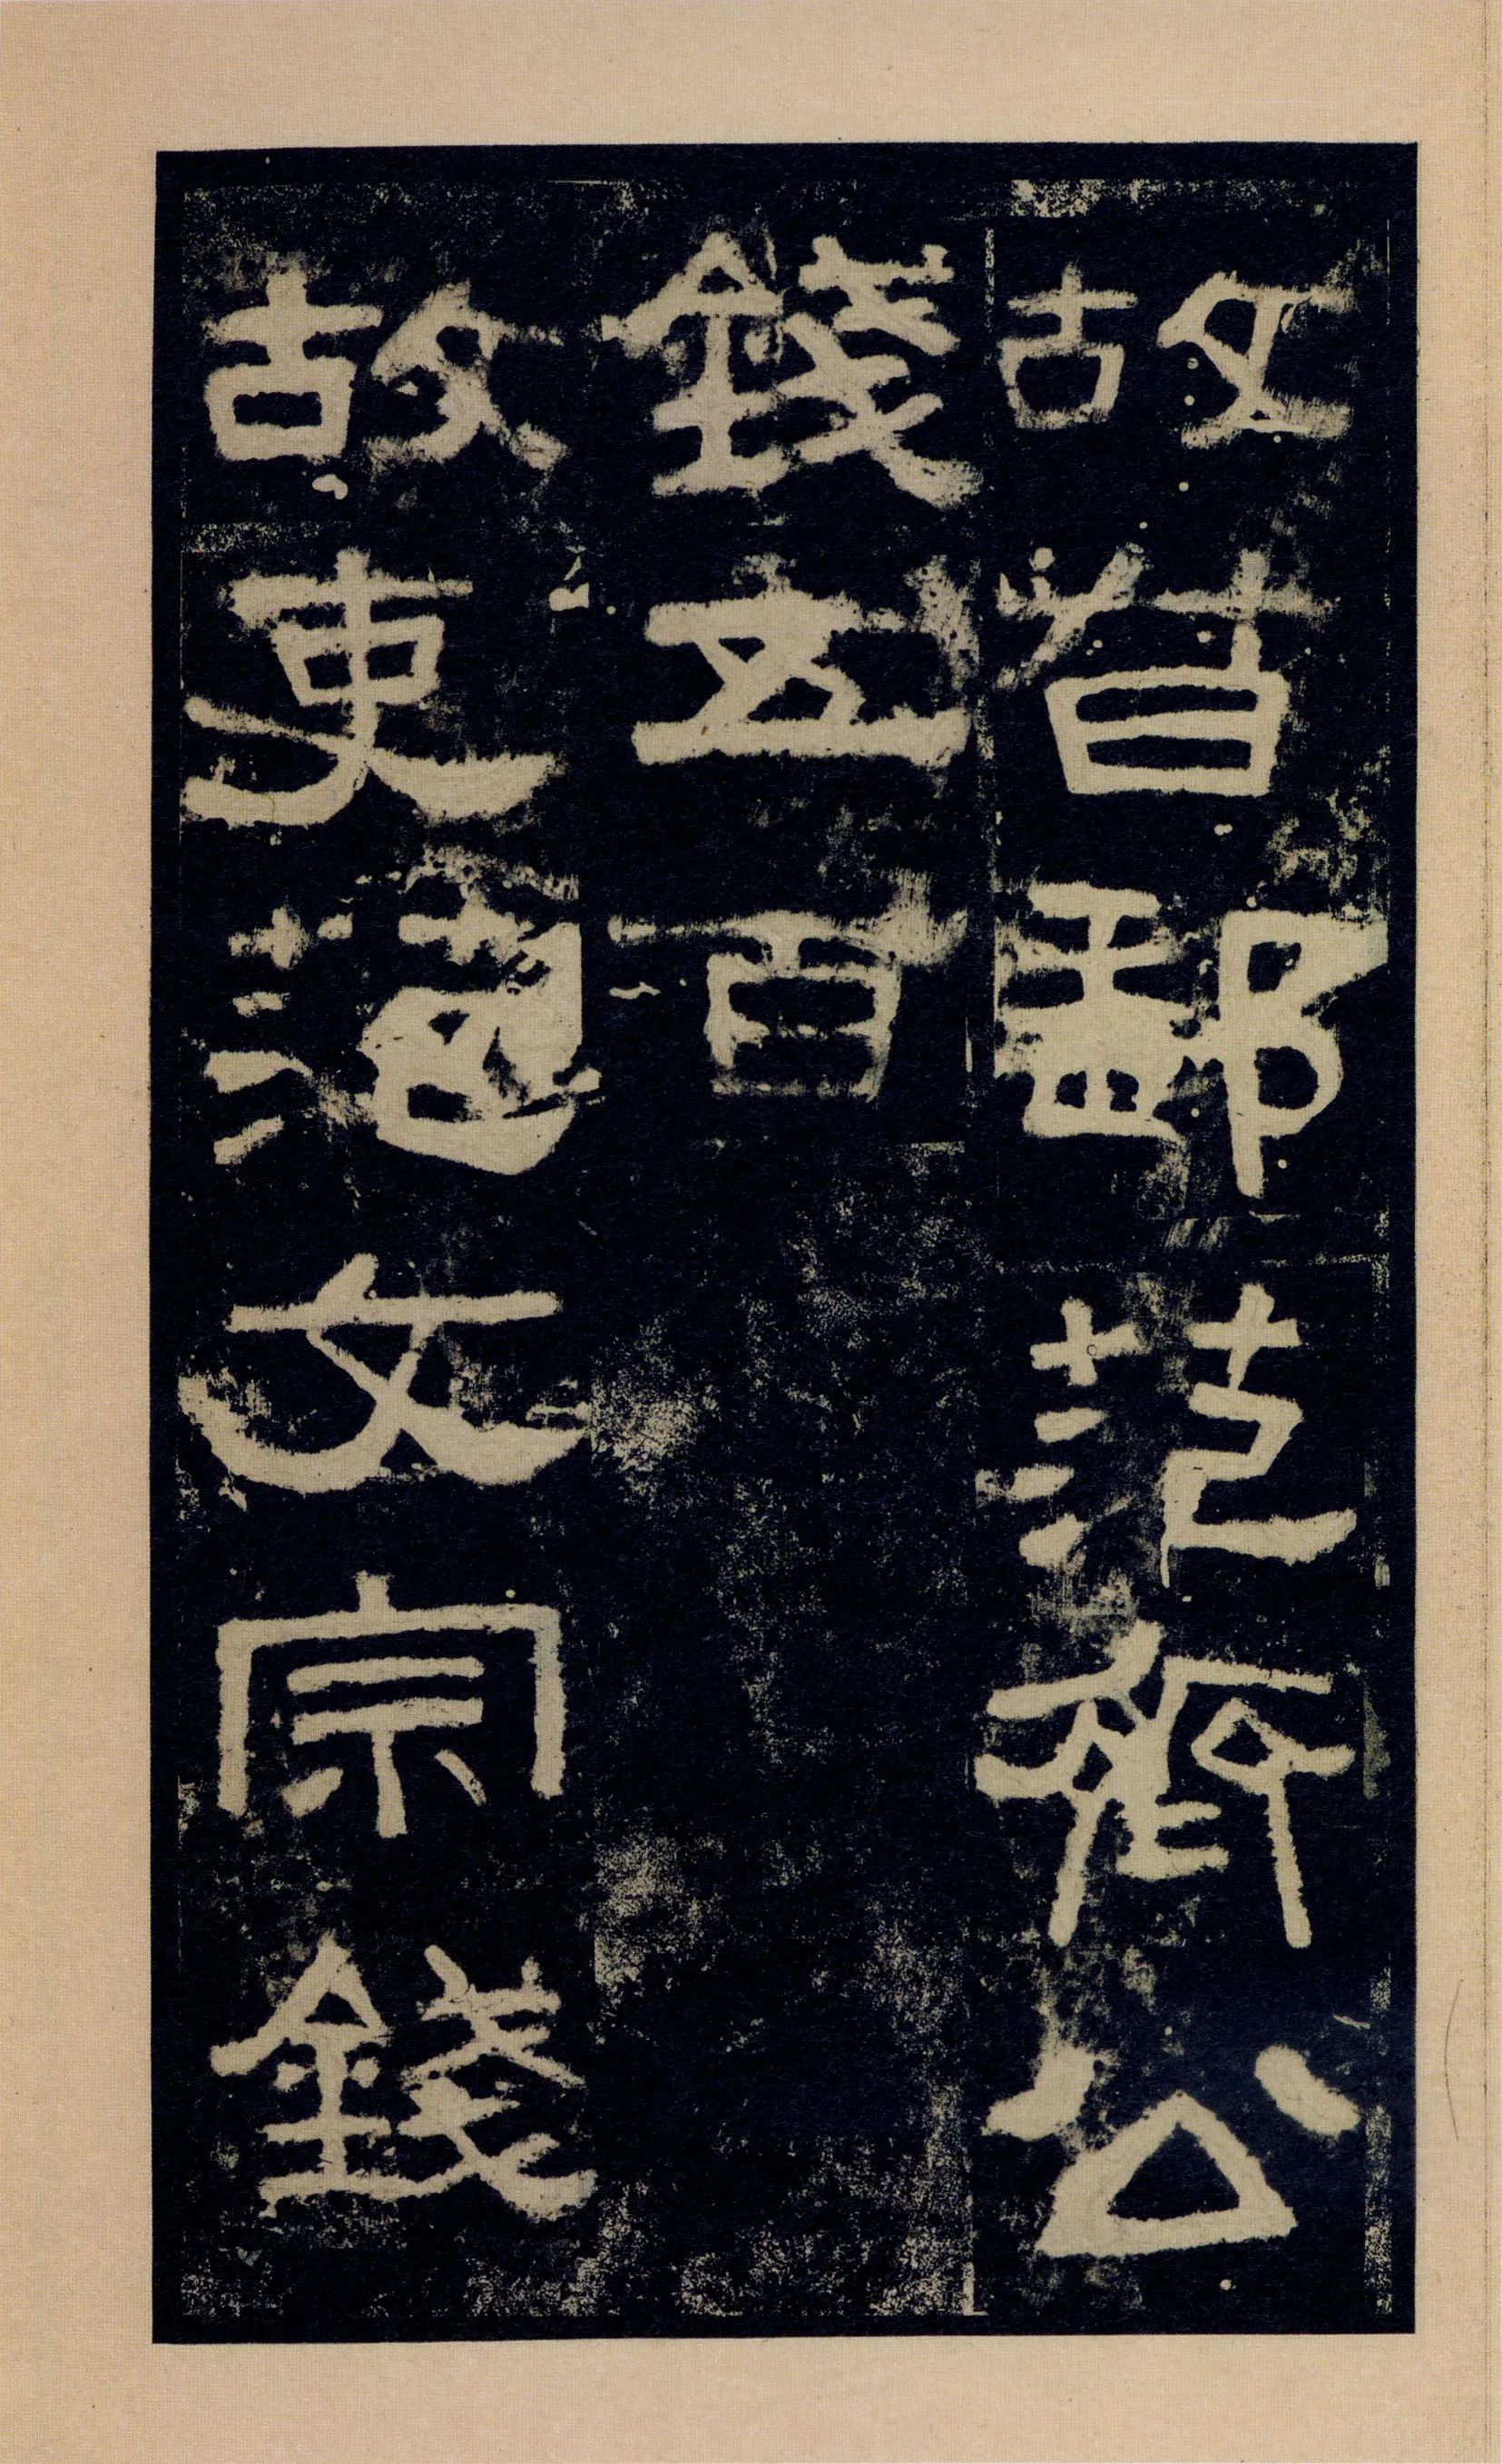 故督郵范齊公
錢五百
故吏范文宗錢